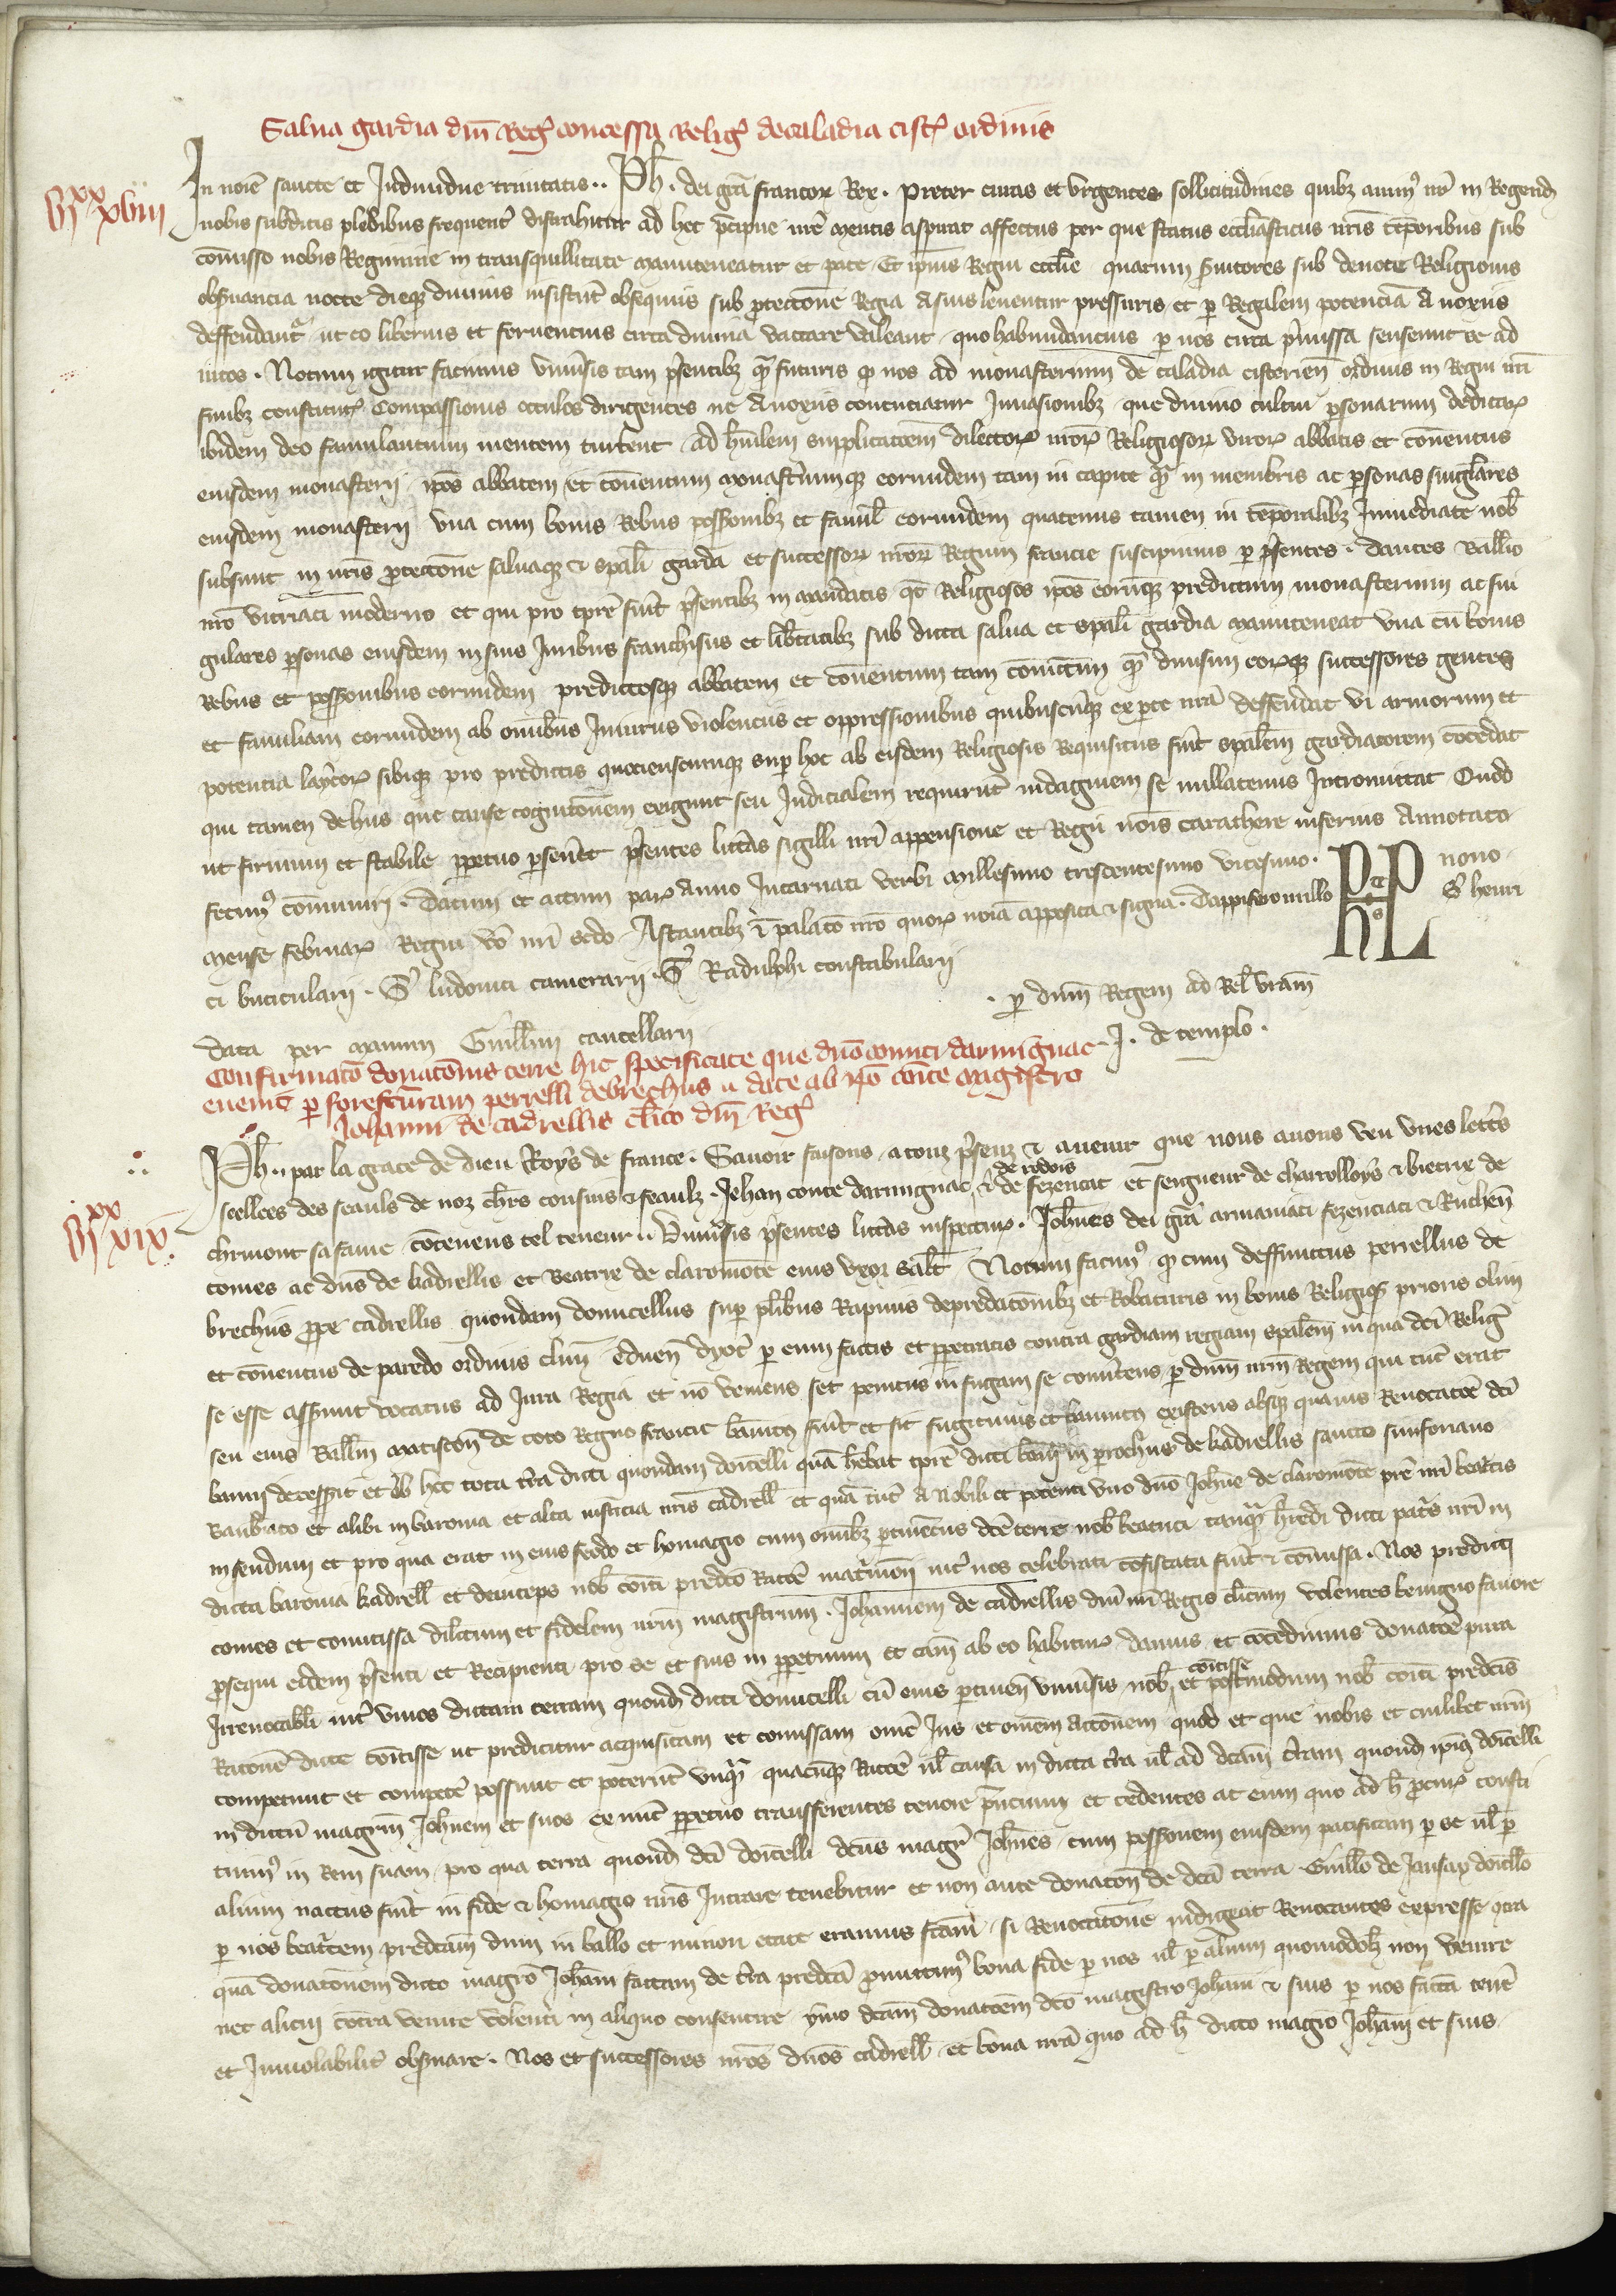 Salua gardia dni Reg concessa Relig de caladia cist ordinis
In noie sancte et Indiuidue trinitatis .. Ph . dei gra francor Rex . Preter curas et vrgentes sollicitudines quibz anim nr in Regend
iiii xx xviii
nobis subditis plebibus frequent distrahitur ad hec pcipue nre mentis aspirat affectus per que status ecclasticus nris temporibus sub
comisso nobis Regimine in transquillitate manuteneatur et pace . Et ipius Regni ecclie quarum suitores sub deuote Religionis
obsuancia nocte dieqz diuinis insistut obsequiis sub ptectione Regia a suis leuentur pressuris et p Regalem potencia a noxiis
deffendant ut eo liberius et feruencius circa diuina vaccare valeant quo habundancius p nos circa pmissa senserint se ad
iutos . Notum igitur facimus vniusis tam psentibz q futuris q nos ad monasterium de caladia cistercien ordinis in Regni nri
finibz constitut compassionis occulos dirigentes ne a noxiis concuciatur Inuasionibz que diuino cultui psonarum dedicat
ibidem deo famulantium mentem turbent ad humilem supplicatoem dilector nror Religiosor viror abbatis et conuentus
eiusdem monasterii ipos abbatem et conuentum monastiumqz eorumdem tam in capite q in membris ac psonas singlares
eiusdem monasterii vna cum bonis Rebus possionibz et famil eorumdem quatenus tamen in temporalibz Inmediate nob
subsunt in nris ptectione saluaqz et spali garda et successor nror Regum francie suscipimus p psentes . dantes Balliuo
nro vitriaci moderno et qui pro tpre fuit psentibz in mandatis qt Religiosos ipos eorumqz predictum monasterium ac sin
gulares psonas eiusdem in suis Iuribus franchisiis et libtatibz sub dicta salua et spali gardia manuteneat vna cu bonis
Rebus et possionibus eorumdem predictosqz abbatem et conuentum tam coniuctim q diuisim eorqz successores gentes
et familiam eorumdem ab omibus Iniuriis violenciis et oppressionibus quibuscuqz ex pte nra deffendat vi armorum et
potencia laycor sibiqz pro predictis quocienscumqz sup hoc ab eisdem Religiosis Requisitus fuit spalem gardiatorem cocedat
qui tamen de hiis que cause cognitionem exigunt seu Iudicialem requirut indaginem se nullatenus Intromittat Quod
ut firmum et stabile ppetuo pseuet psentes litteras sigilli nri appensione et Regii nois carathere inferius annotato
fecim comuniri . Datum et actum par anno Incarnati verbi millesimo trescentesimo vicesimo . nono
mense februar Regni vo nri scdo . Astantibz i palaco nro quor noia apposita et signa . Dappifero nullo S henri
ci buticularii . S ludouici camerarii . S Radulphi constabularii
. p dnm Regem ad Rel vram
Data per manum Guillmi cancellarii J . de templo .
Confirmato donatonis terre hic specificate que dno comiti darmignac
euenit p forefcuram perrelli de brechiis a date ab ipo conte magistro
Iohanni de cadrellis clico dni Reg
Ph .. par la grace de dieu Roys de france . Sauoir faisons a touz psenz et auenir que nous auons veu vnes lettres
scellees des seauls de noz chrs cousins et feaulz . Jehan conte darmignac et de fezencat de rodois et seigneur de charrolloys et bietrie de
iiii xx xix
clermont sa fame contenens tel teneur .. Vniusis psentes littas inspectur . Johnes dei gra armaniaci fezenciaci et Ruthen
comes ac dns de kadrellis et Beatrix de claromote eius vxor salt Notum facim q cum deffunctus perrellus de
brechiis ppe cadrellis quondam domicellus sup plibus Rapinis depredatoibz et Robaturis in bonis Religios prioris olim
et conuentus de paredo ordinis clun eduen dyoc p eum factis et ppetratis contra gardiam regiam spalem in qua dci Relig
se esse asserunt vocatus ad Iura Regia et no veniens set penitus in fugam se conutens p dnm nrm Regem qui tuc erat
seu eius Balliu matiscon de toto Regno francie banitus fuit et sit fugitiuus et banitus existens absqz quauis Reuocatoe dci
banni decesserit et ob hec tota tra dicti quondam doicelli qua hebat tpre dicti banni in prochiis de kadrellis sancto simforiano
Banbraco et alibi in baronia et alta iusticia nris cadrell et qua tuc a nobili et potenti viro dno Johne de claromote pre nri beatcis
in feudum et pro qua erat in eius feodo et homagio cum omibz ptinenciis dce terre nob beatrici tanq hredi dicti patis nri in
dicta baronia kadrell et deinceps nob comiti predco Racoe matrimoni int nos celebrati cofiscata fuit et comissa . Nos predicti
comes et comitissa dilctum et fidelem nrm magistrum . Iohannem de cadrellis dni nri Regis clicum volentes benigno fauore
psequi eidem psenti et Recipienti pro se et suis in ppetuum et cam ab eo habitur damus et cocedimus donacoe pura
Irreuocabili int viuos dictam terram quond dicti domicelli cu eius ptinen vniusis nob comitisse et postmodum nob comiti predcis
Racone dicte comitisse ut predicitur acquisitam et comissam omne Ius et omem actonem quod et que nobis et cuilibet nrm
competunt et compete possunt et poterut vnq quacuqz Racoe ul causa in dicta tra ul ad dcam tram quond ipius doicelli
in dictu magrum Johnem et suos ex nuc ppetuo transferentes tenore pncium et cedentes ac eum quo ad h pcur consti
tuim in Rem suam . pro qua terra quond dci doicelli dcus magr Johnes cum possionem eiusdem pacificam p se ul p
alium nactus fuit in fide et homagio nris Intrare tenebitur et non ante donaton de dca terra Guillo de Jansay doicello
p nos beatricem predcam dum in ballo et minori etate eramus fcam . si Reuocatone indigeat Reuocantes expresse qua
qua donatonem dicto magro Johani factam de tra predca pmittim bona fide p nos ul p alium quomodolz non venire
nec alicui cotra venire volenti in aliquo consentire ymo dcam donacoem dco magistro Johani et suis p nos facta tene
et Inuiolabilit obsuare . Nos et successores nros dnos cadrell et bona nra quo ad h dicto magro Johani et suis